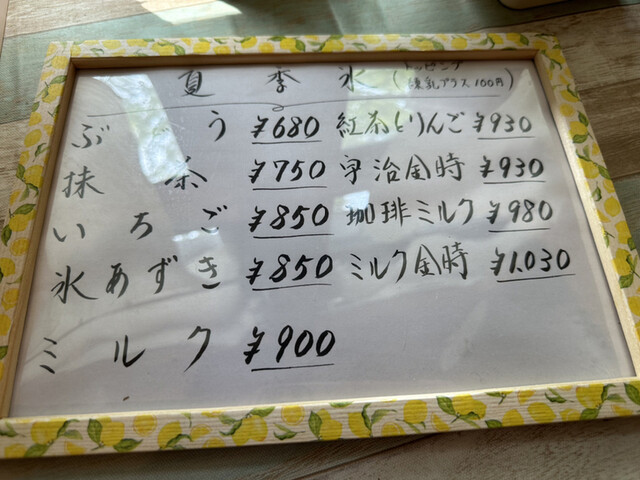 夏季氷 (トッピング 練乳プラス100円)
ぶどう ¥680 紅茶とりんご ¥930
抹茶 ¥750 宇治金時 ¥930
いちご ¥850 珈琲ミルク ¥980
氷あずき ¥850 ミルク金時 ¥1.030
ミルク ¥900